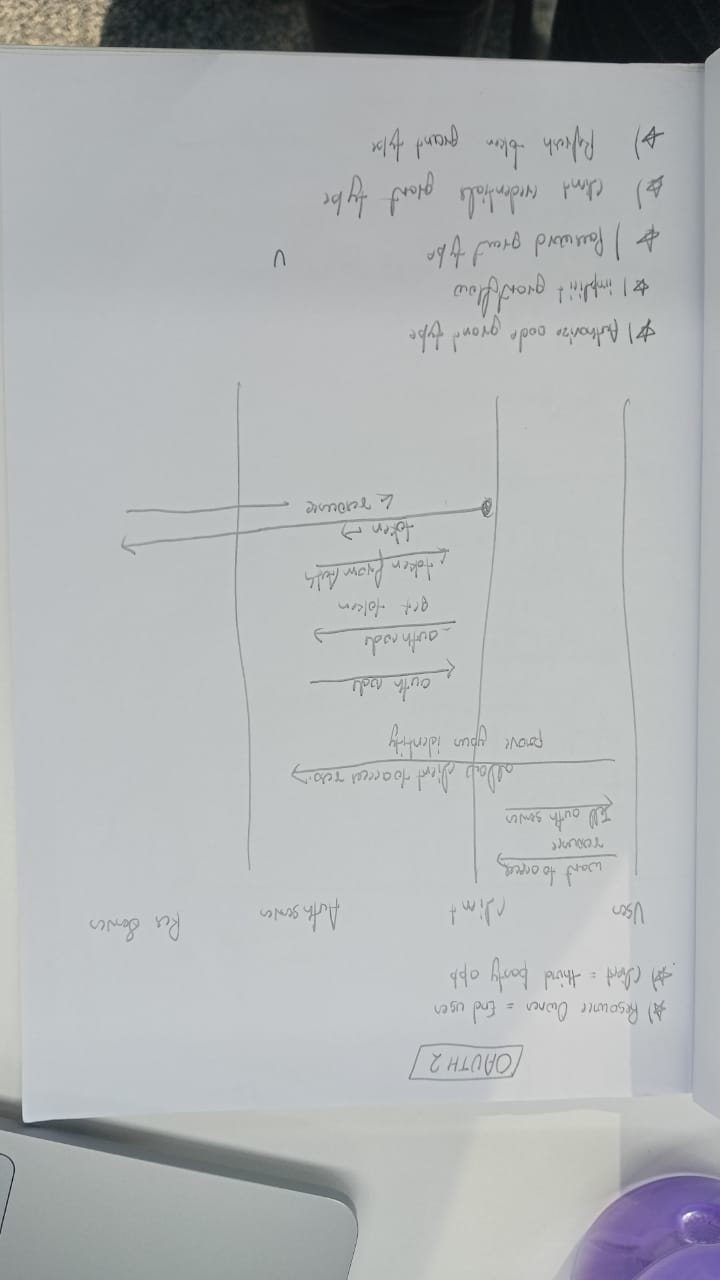 OAUTH 2
☆) Resource Owner = End user
☆) Client = third party app
User Client Auth server Res Server
want to access
resource
Tell auth server
allow client to access reso.
prove your identity
auth code
auth code
get token
token from Auth
token →
← resource
☆) Authorize code grant type
☆) implicit grant flow
☆) Password grant type
☆) Client credentials grant type
☆) Refresh token grant type